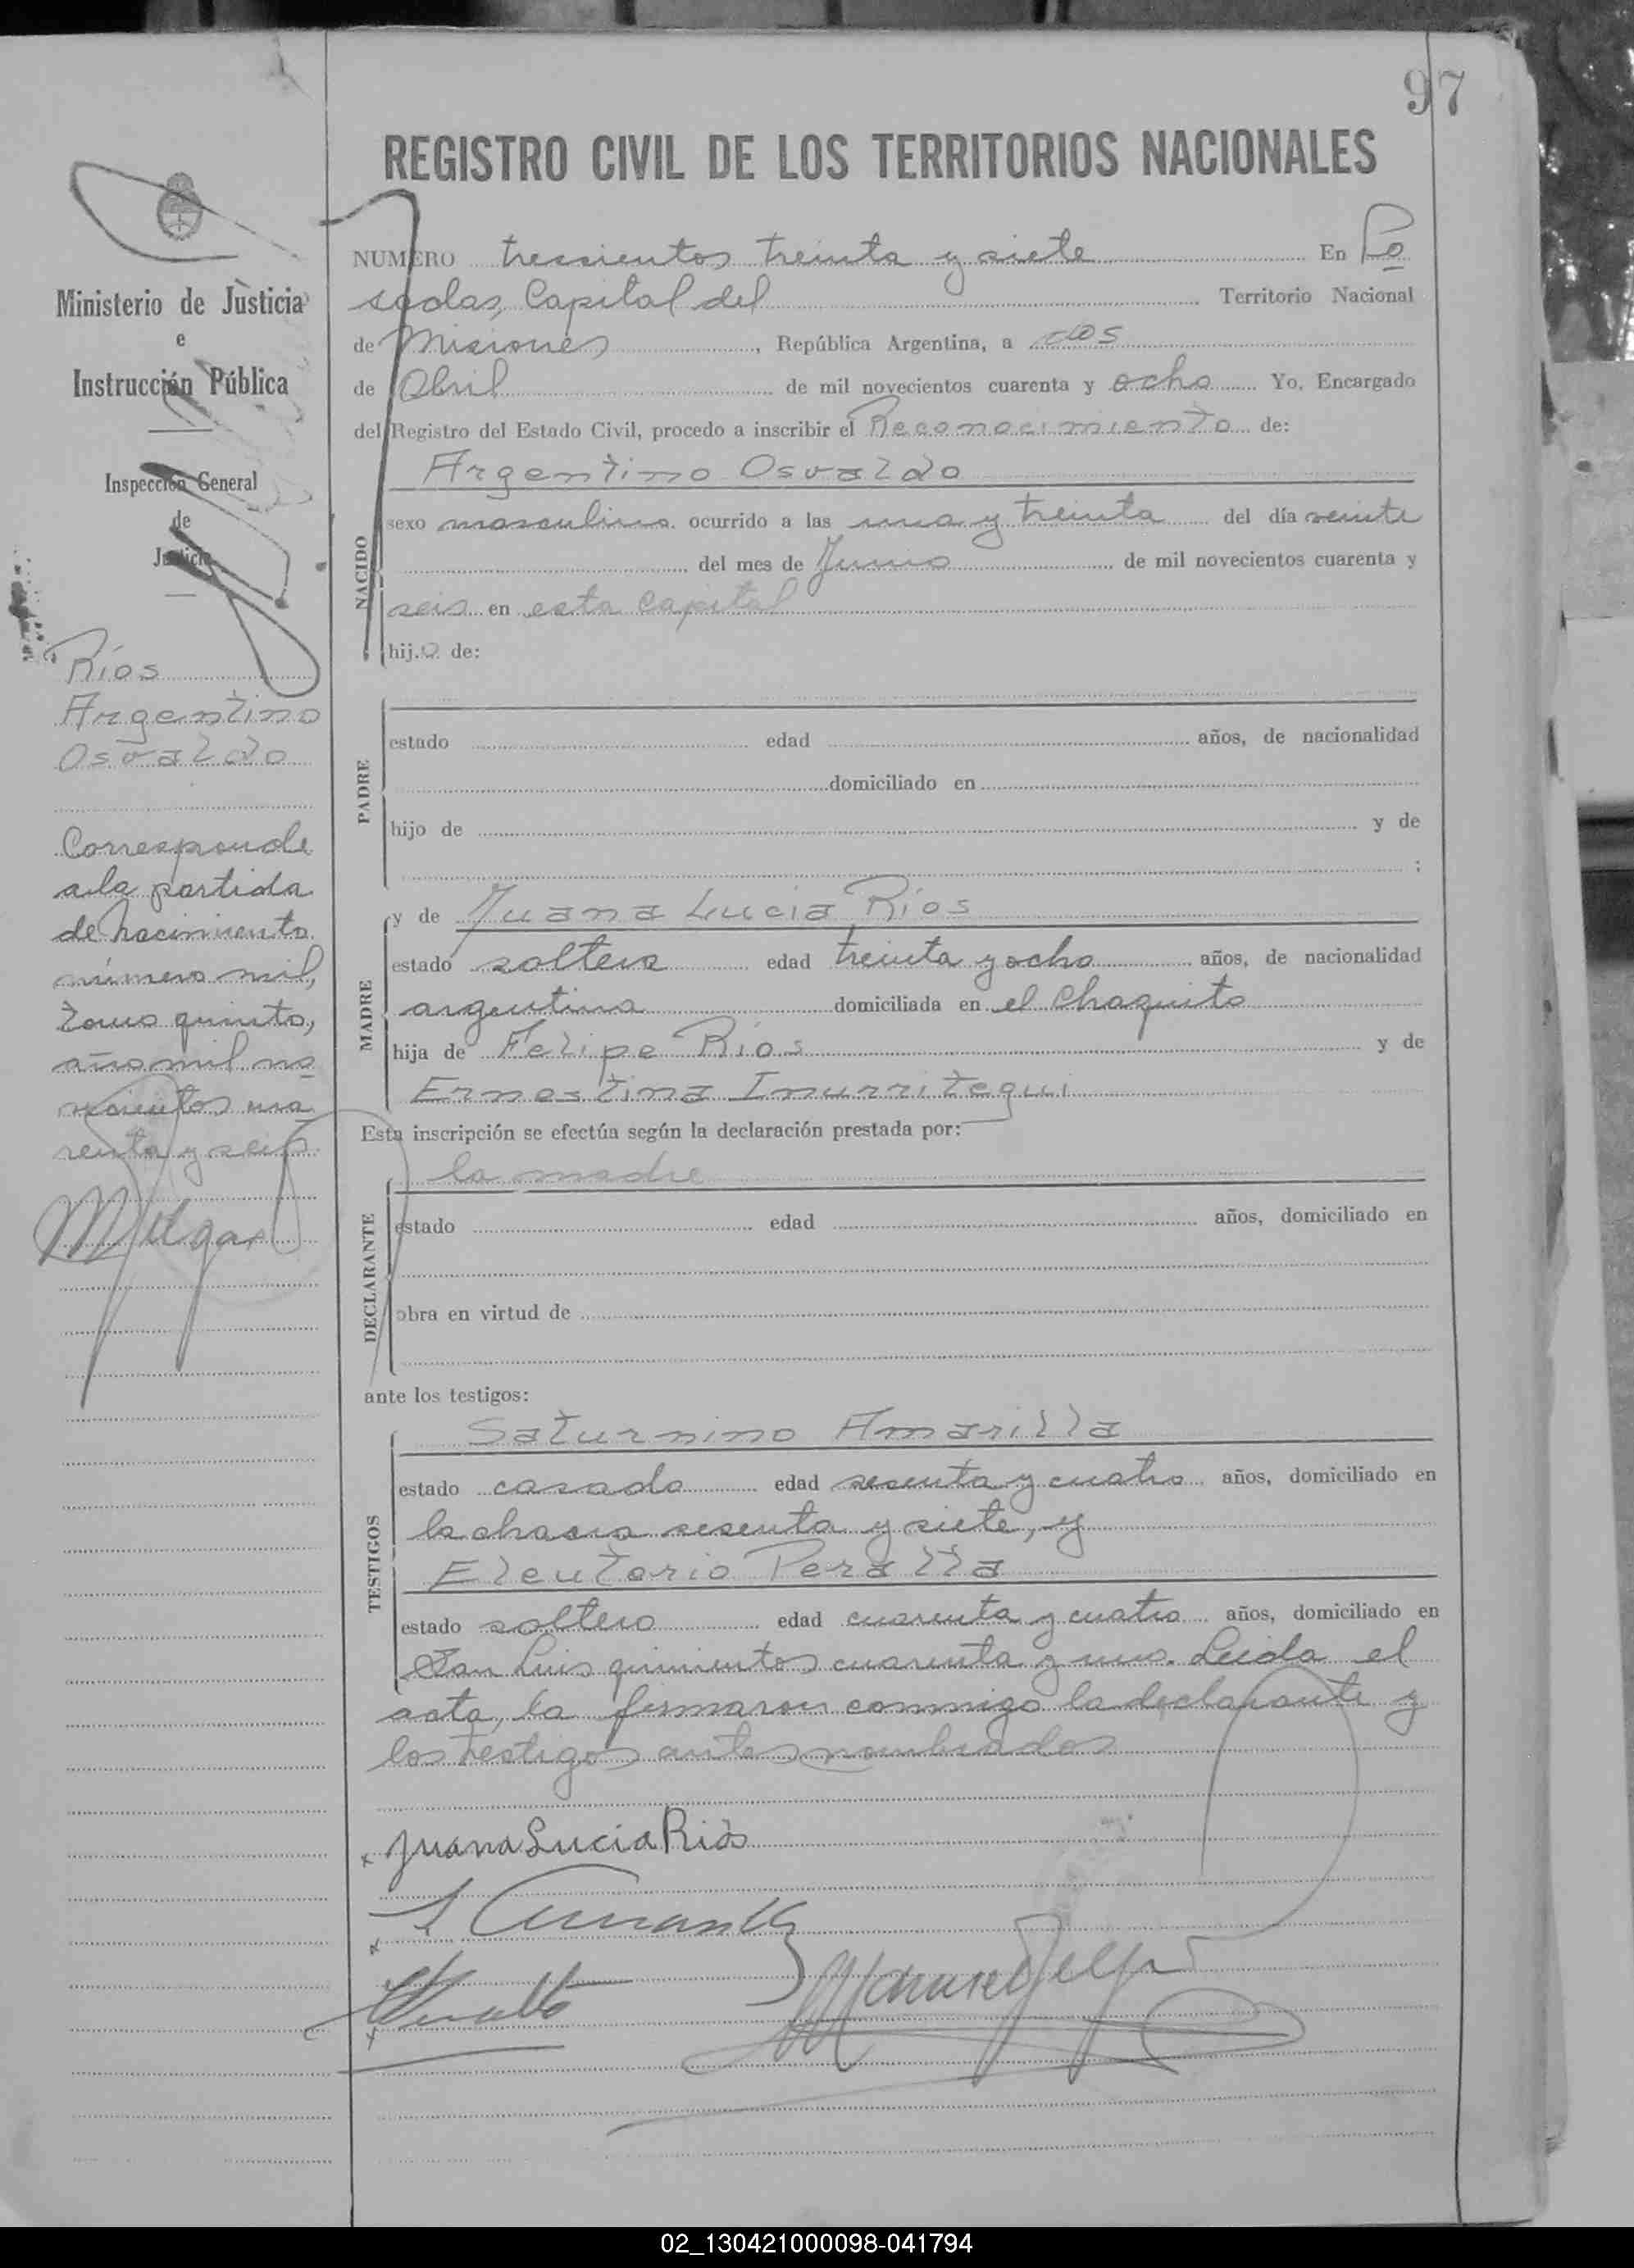 97
REGISTRO CIVIL DE LOS TERRITORIOS NACIONALES
Ministerio de Justicia
e
Instrucción Pública
Inspección General
de
Justicia
Ríos
Argentino
Osvaldo
Corresponde
a la partida
de nacimiento
número mil,
tomo quinto,
año mil no
vecientos cua
renta y seis.
NUMERO trescientos treinta y siete En Po
sadas, Capital del Territorio Nacional
de Misiones, República Argentina, a dos
de Abril de mil novecientos cuarenta y ocho Yo, Encargado
del Registro del Estado Civil, procedo a inscribir el Reconocimiento de:
Argentino Osvaldo
NACIDO
sexo masculino ocurrido a las una y treinta del día veinte
del mes de Junio de mil novecientos cuarenta y
seis en esta Capital
hijo de:
PADRE
estado edad años, de nacionalidad
domiciliado en
hijo de y de
;
MADRE
y de Juana Lucia Ríos
estado soltera edad treinta y ocho años, de nacionalidad
argentina domiciliada en el Chaquito
hija de Felipe Ríos y de
Ernestina Inurritegui
Esta inscripción se efectúa según la declaración prestada por:
la madre
DECLARANTE
estado edad años, domiciliado en
obra en virtud de
ante los testigos:
TESTIGOS
Saturnino Amarilla
estado casado edad sesenta y cuatro años, domiciliado en
la chacra sesenta y siete, y
Eleuterio Peralta
estado soltero edad cuarenta y cuatro años, domiciliado en
San Luis quinientos cuarenta y uno. Leida el
acta, la firmaron conmigo la declarante y
los testigos antes nombrados
x Juana Lucia Riós
x
x
02_130421000098-041794